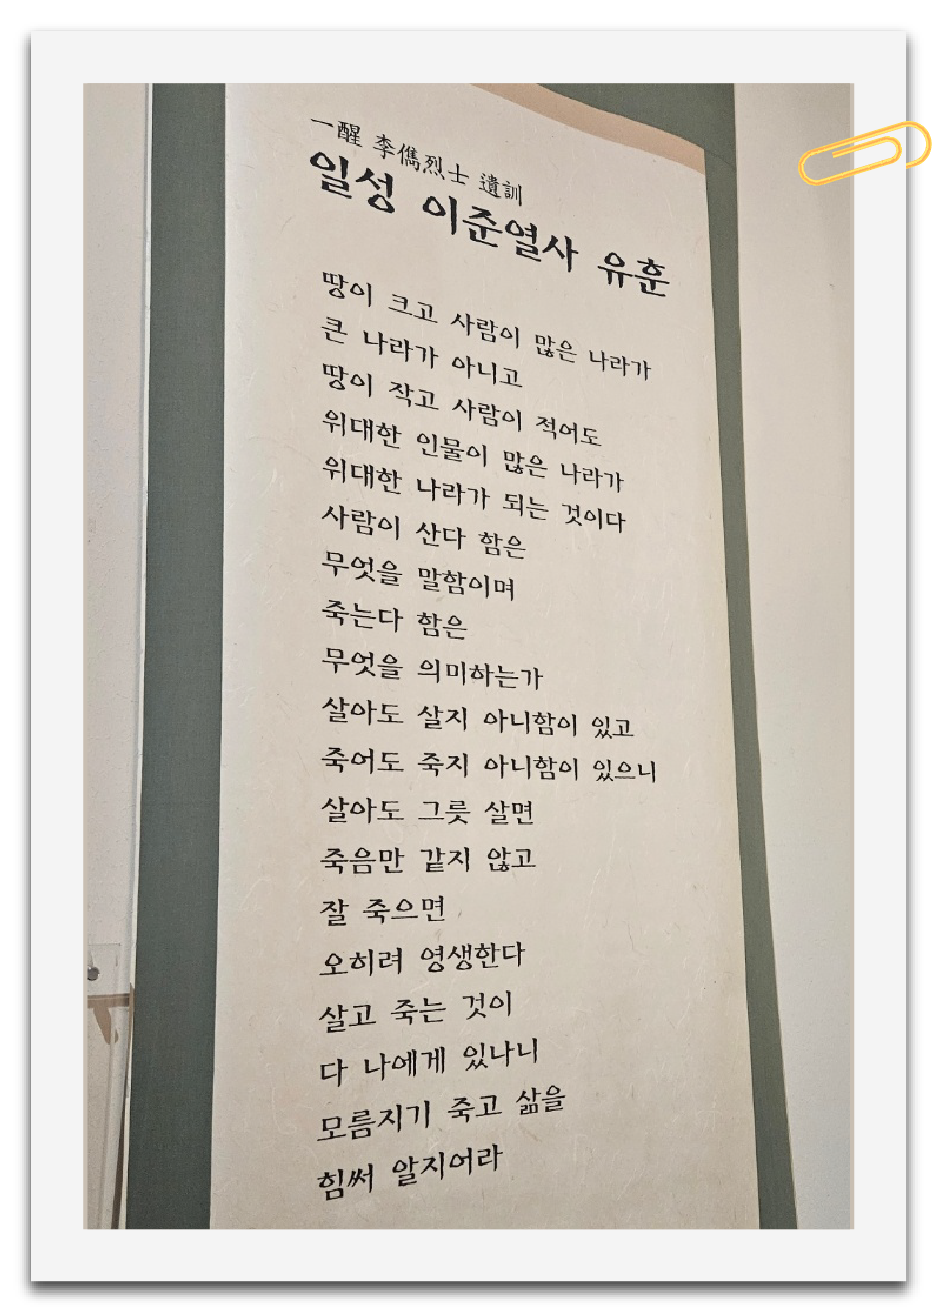 一醒 李儁烈士 遺訓
일성 이준열사 유훈
땅이 크고 사람이 많은 나라가
큰 나라가 아니고
땅이 작고 사람이 적어도
위대한 인물이 많은 나라가
위대한 나라가 되는 것이다
사람이 산다 함은
무엇을 말함이며
죽는다 함은
무엇을 의미하는가
살아도 살지 아니함이 있고
죽어도 죽지 아니함이 있으니
살아도 그릇 살면
죽음만 같지 않고
잘 죽으면
오히려 영생한다
살고 죽는 것이
다 나에게 있나니
모름지기 죽고 삶을
힘써 알지어라